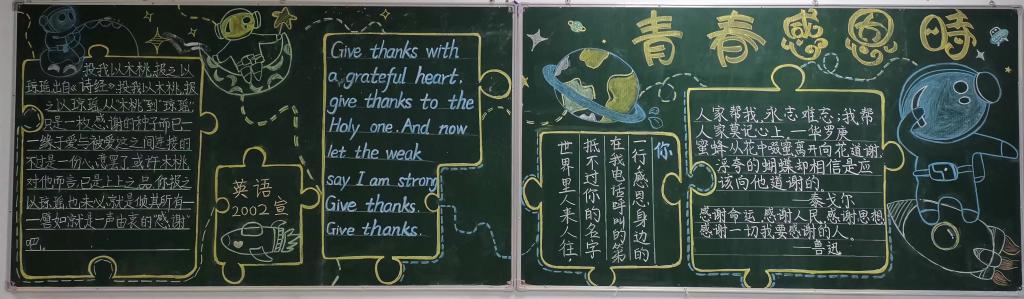 投我以木桃,报之以
琼瑶出自《诗经》。投我以木桃,报
之以琼瑶,从"木桃"到"琼瑶"
只是一枚感谢的种子而已
一缘于爱与被爱这之间连接的
不过是一份心意罢了,或许木桃
对他而言,已是上上之品,你报之
以琼瑶也未必,就是倾其所有
一譬如就是一声由衷的"感谢"
吧。
英语
2002宣
Give thanks with
a grateful heart,
give thanks to the
Holy one. And now
let the weak
say I am strong
Give thanks.
Give thanks.
青春感恩時
你,
一行感恩身边的
在我电话呼叫的第
抵不过你的名字
世界里人来人往
人家帮我,永志难忘;我帮
人家莫记心上。—华罗庚
蜜蜂从花中啜蜜,离开向花道谢,
浮夸的蝴蝶却相信是应
该向他道谢的
—泰戈尔
感谢命运,感谢人民,感谢思想,
感谢一切我要感谢的人。
—鲁迅